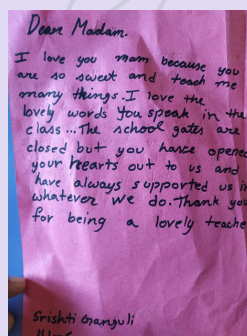 Dear Madam.
I love you mam because you
are so sweet and teach me
many things. I love the
lovely words you speak in the
class... The school gates are
closed but you have opene
your hearts out to us and
have always supported us i
whatever we do. Thank you
for being a lovely teache
Srishti Ganguli